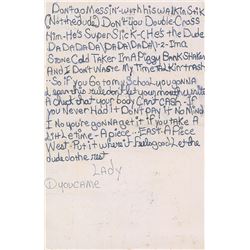 Don't go Messin-with his walkin Stik
(Not the dude) Don't-you Double-Cross
Him-He's SuperSlick-(He's the Dude
DA DA DA DA DA DA DA DA)-2-Ima
Stone Cold Taker Im A Piggy Bank Shaker
And I Don't Waste My Time Talkin trash
-So if You Go to my School you gonna
learn this rule don't let your mouth write
A check that your body CAnt CASh-if
You Never Had it DONT PAY it No Mind
I No you're gonna get it if you take A
Little time-A piece... EAST-A Piece
West-Put it where it feels good Let the
dude do the rest
LADY
① you CAME